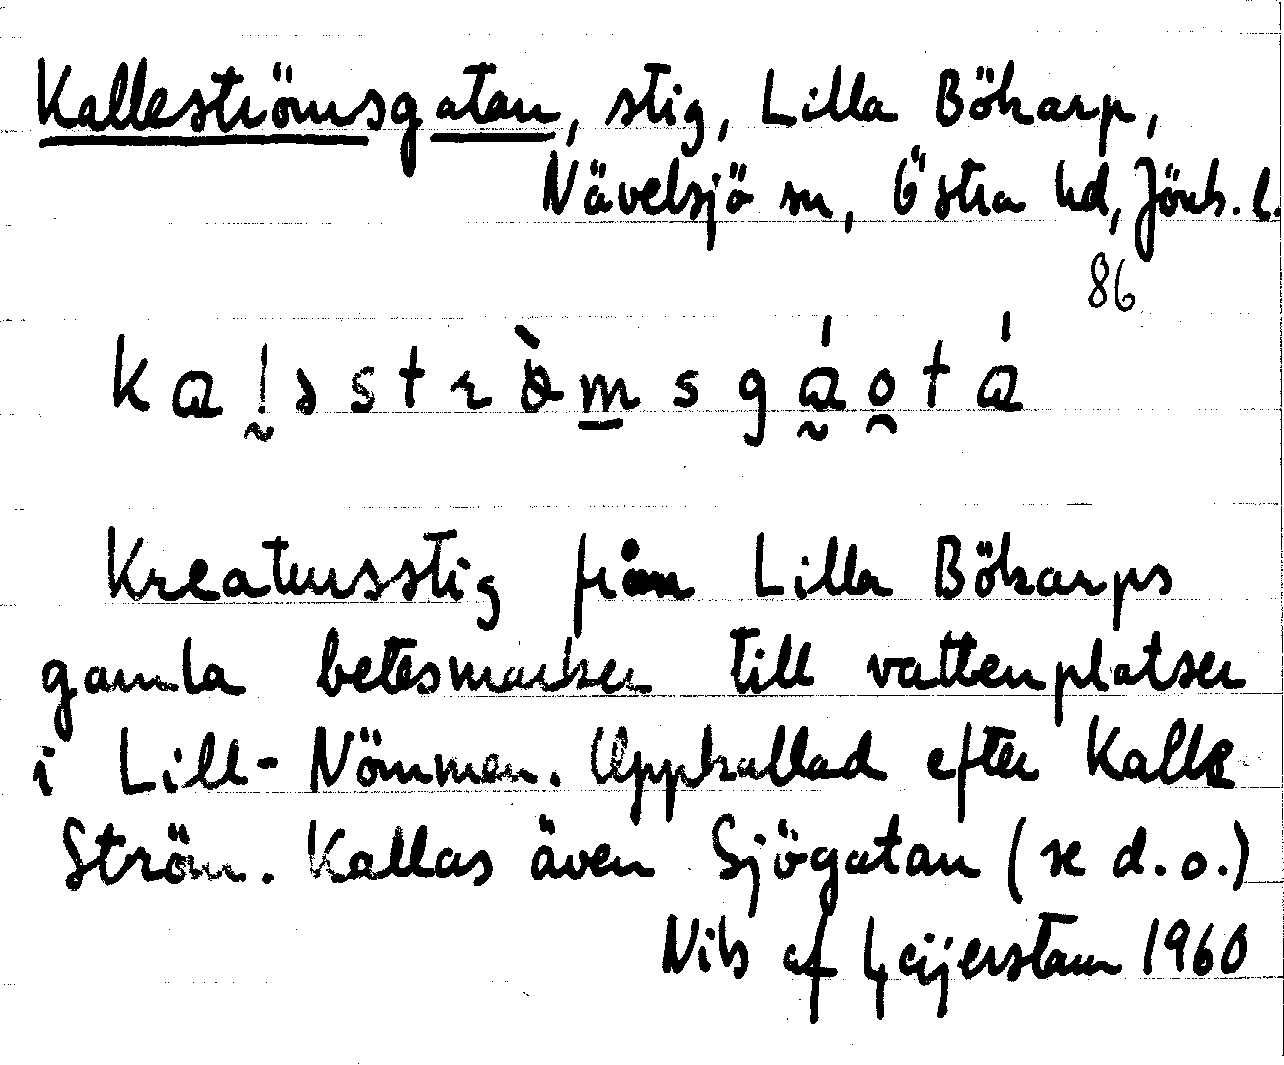 Kalleströmsgatan, stig, Lilla Bökarp,
Nävelsjö sn, Östra hd, Jönk. l.
86
Kreatursstig från Lilla Bökarps
gamla betesmarker till vattenplatser
i Lill-Nömmen. Uppkallad efter Kalle
Ström. Kallas även Sjögatan (se d.o.)
Nils af Geijerstam 1960